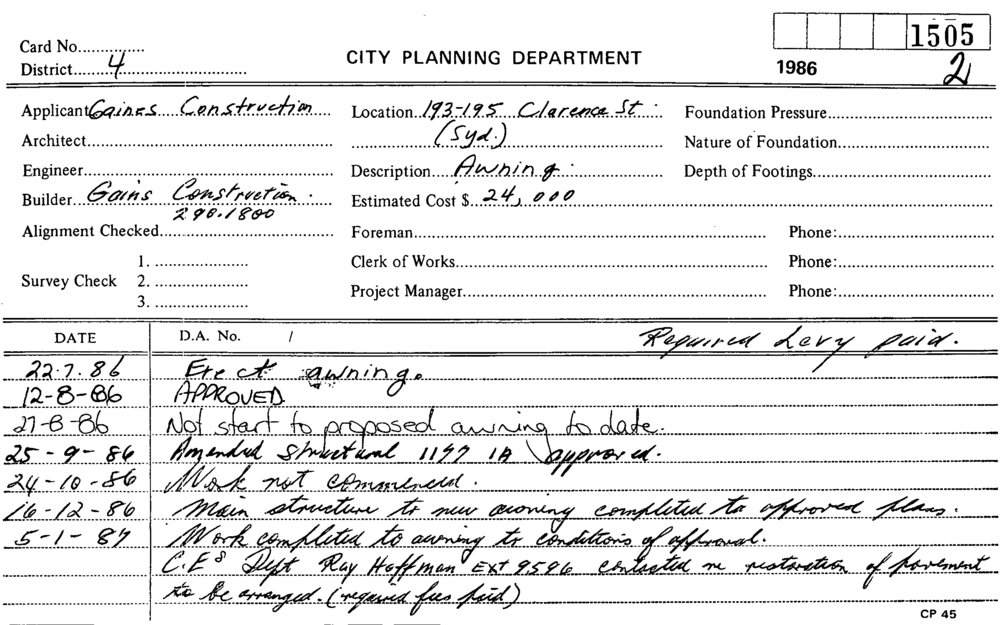 1505
Card No...............
District........4..............................
CITY PLANNING DEPARTMENT
1986
2
Applicant Gaines Construction
Location 193-195 Clarence St.
Foundation Pressure
Architect
(Syd.)
Nature of Foundation
Engineer
Description Awning.
Depth of Footings
Builder Gains Construction.
Estimated Cost $ 24,000
290.1800
Alignment Checked
Foreman
Phone:
1.
Clerk of Works
Phone:
Survey Check 2.
Project Manager
Phone:
3.
DATE
D.A. No. /
Required Levy paid.
22.7.86 Erect awning.
12-8-86 APPROVED
27-8-86 Not start to proposed awning to date.
25-9-86 Amended structural 1197 1A approved.
24-10-86 Work not commenced.
16-12-86 Main structure to new awning completed to approved plans.
5-1-87 Work completed to awning to conditions of approval.
C.E's Dept Ray Hoffman Ext 9596 contacted re restoration of pavement
to be arranged. (required fees paid)
CP 45